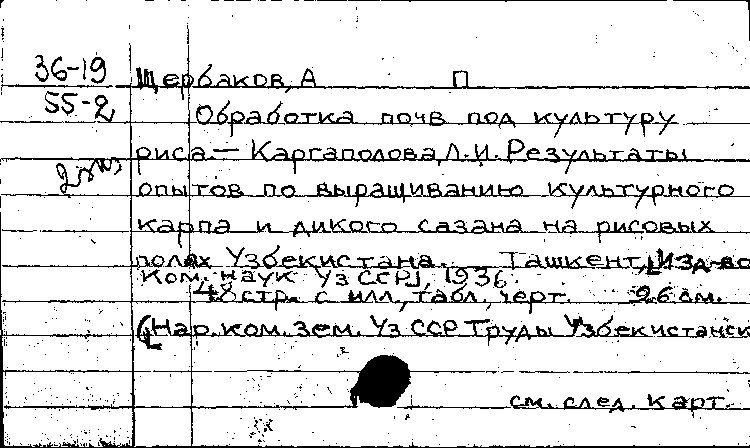 36-19
55-2
2 экз
Щербаков, А П
Обработка почв под культуру
риса.— Каргаполова, Л.И. Результаты
опытов по выращиванию культурного
карпа и дикого сазана на рисовых
полях Узбекистана. Ташкент, [Изд-во
Ком. наук Уз ССР], 1936.
48 стр. с илл., табл., черт. 26 см.
(Нар. ком. зем. Уз ССР Труды Узбекистанск
см. след. карт.